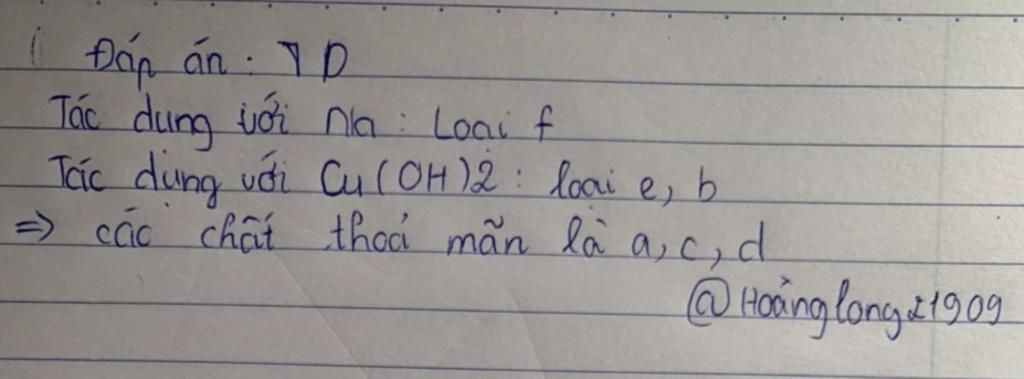 Đáp án : D
Tác dung với Na : Loại f
Tác dụng với Cu(OH)2 : loại e, b
=> các chất thoả mãn là a, c, d
@Hoànglongz1909